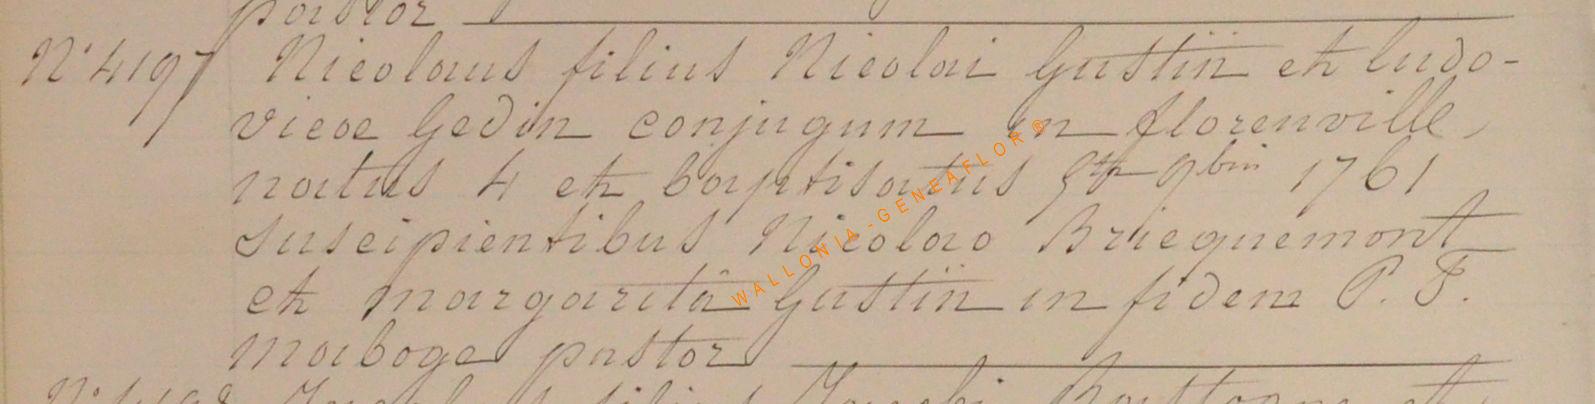 pastor
N° 4197 Nicolaus filius Nicolai Gustin et ludo-
vicae Gedin conjugum in florenville,
natus 4 et baptisatus 5ta 9bris 1761
suscipientibus Nicolao Bricquemont
et margaritâ Gustin in fidem P. F.
maboge pastor
WALLONIA-GENEAFLOR®